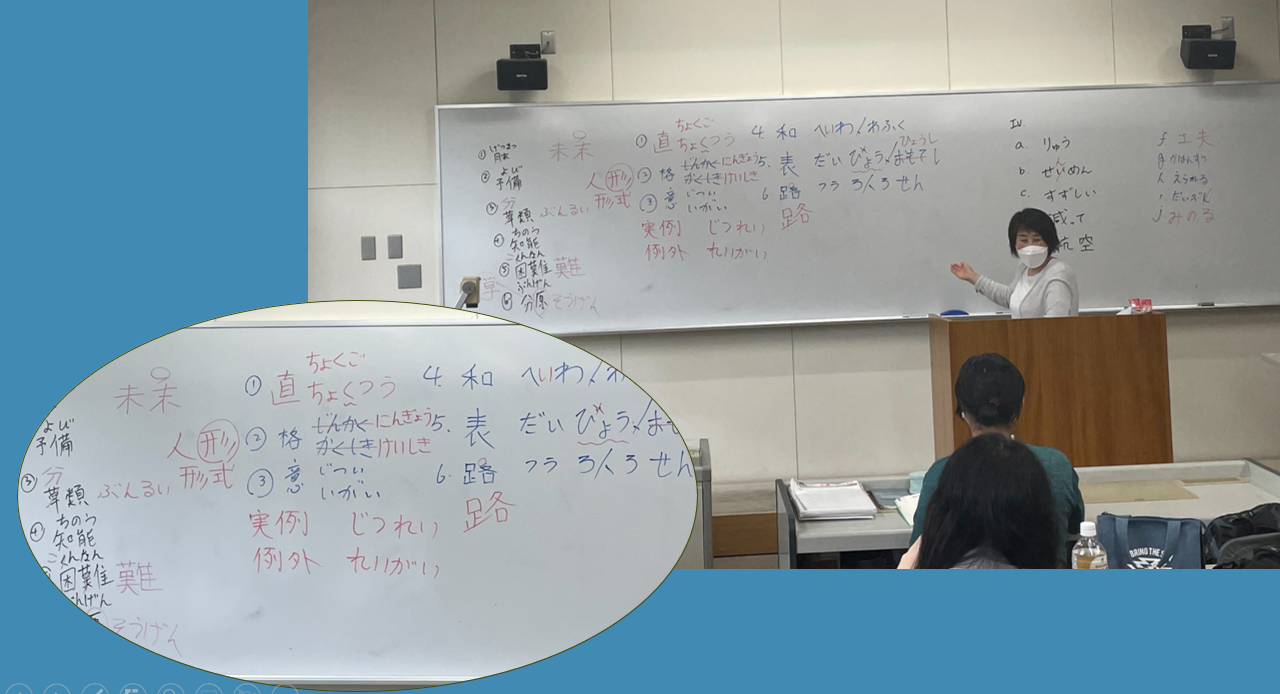 ① げつまつ
月末
② よび
予備
③ 分
草類 ぶんるい
④ ちのう
知能
こんなん
⑤ 困難 難
ぶんげん
⑥ 分原 そうげん
草
未末
人形
形式
ちょくご
① 直 ちょくつう
② 格 じんかく にんぎょう
かくしき けいしき
③ 意 じつい
いがい
実例 じつれい
例外 れいがい
4. 和 へいわ/わふく
ひょうし
5. 表 だい ぴょう/おもてし
6. 路 フラ ろ/くろ せん
路
IV.
a. りゅう
b. せいめん
ん
c. すずしい
減って
航空
f 工夫
h えられる
i だいじん
j みのる
未末
ちょくご
① 直 ちょくつう
4. 和 へいわ/わ
よび
予備
人形
② 格 じんかく にんぎょう
かくしき けいしき
5. 表 だい ぴょう/おも
形式
③ 分
草類 ぶんるい
③ 意 じつい
いがい
6. 路 フラ ろ/くろ せん
路
④ ちのう
知能
実例 じつれい
こくなん
困難 難
例外 れいがい
ぶんげん
原 そうげん
BRING THE